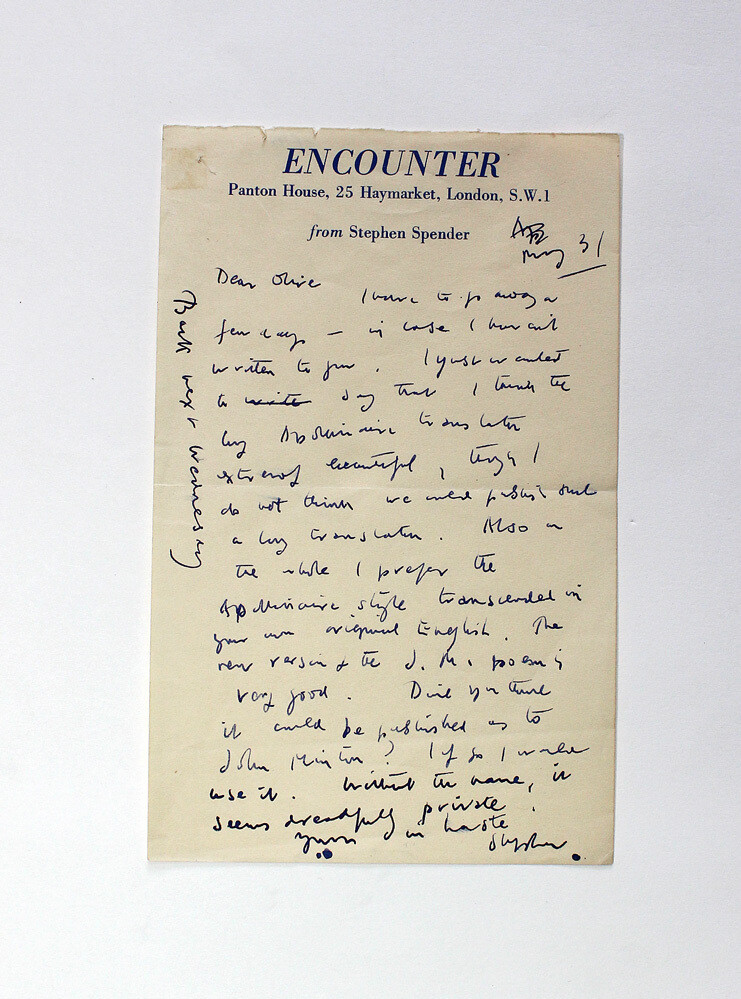 ENCOUNTER
Panton House, 25 Haymarket, London, S.W.1
from Stephen Spender
May 31
Dear Olive
I have to go away a
few days — in case I haven't
written to you. I just wanted
to write say that I think the
long Apollinaire translation
extremely beautiful, though I
do not think we could publish such
a long translation. Also on
the whole I prefer the
Apollinaire style transcended in
your own original English. The
new version of the J. M. poem is
very good. Do you think
it could be published as to
John Minton? If so I would
use it. Without the name, it
seems dreadfully private.
Yours in haste
Stephen
Back next Wednesday